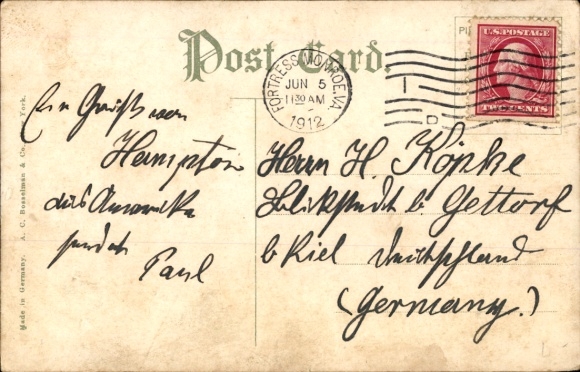 Post Card.
FORTRESS MONROE, VA.
JUN 5
11 30 AM
1912
U.S. POSTAGE
TWO CENTS
D
Ein Gruß von
Hampton
aus Amerika
sendet
Paul
Herrn H. Köpke
Blikstedt b. Gettorf
b Kiel Deutschland
(Germany.)
Made in Germany. A. C. Bosselman & Co., New York.